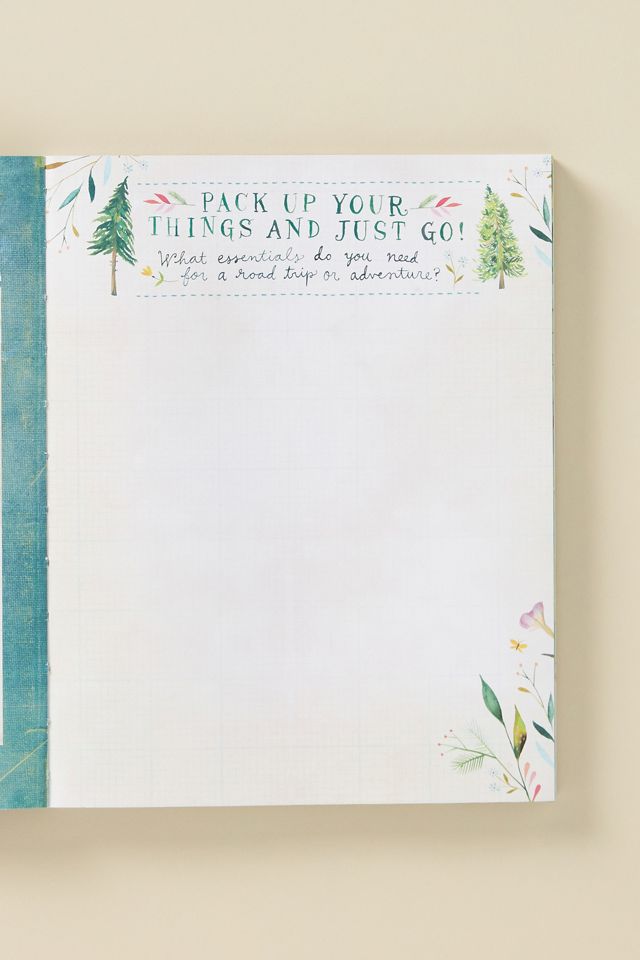 PACK UP YOUR
THINGS AND JUST GO!
What essentials do you need
for a road trip or adventure?